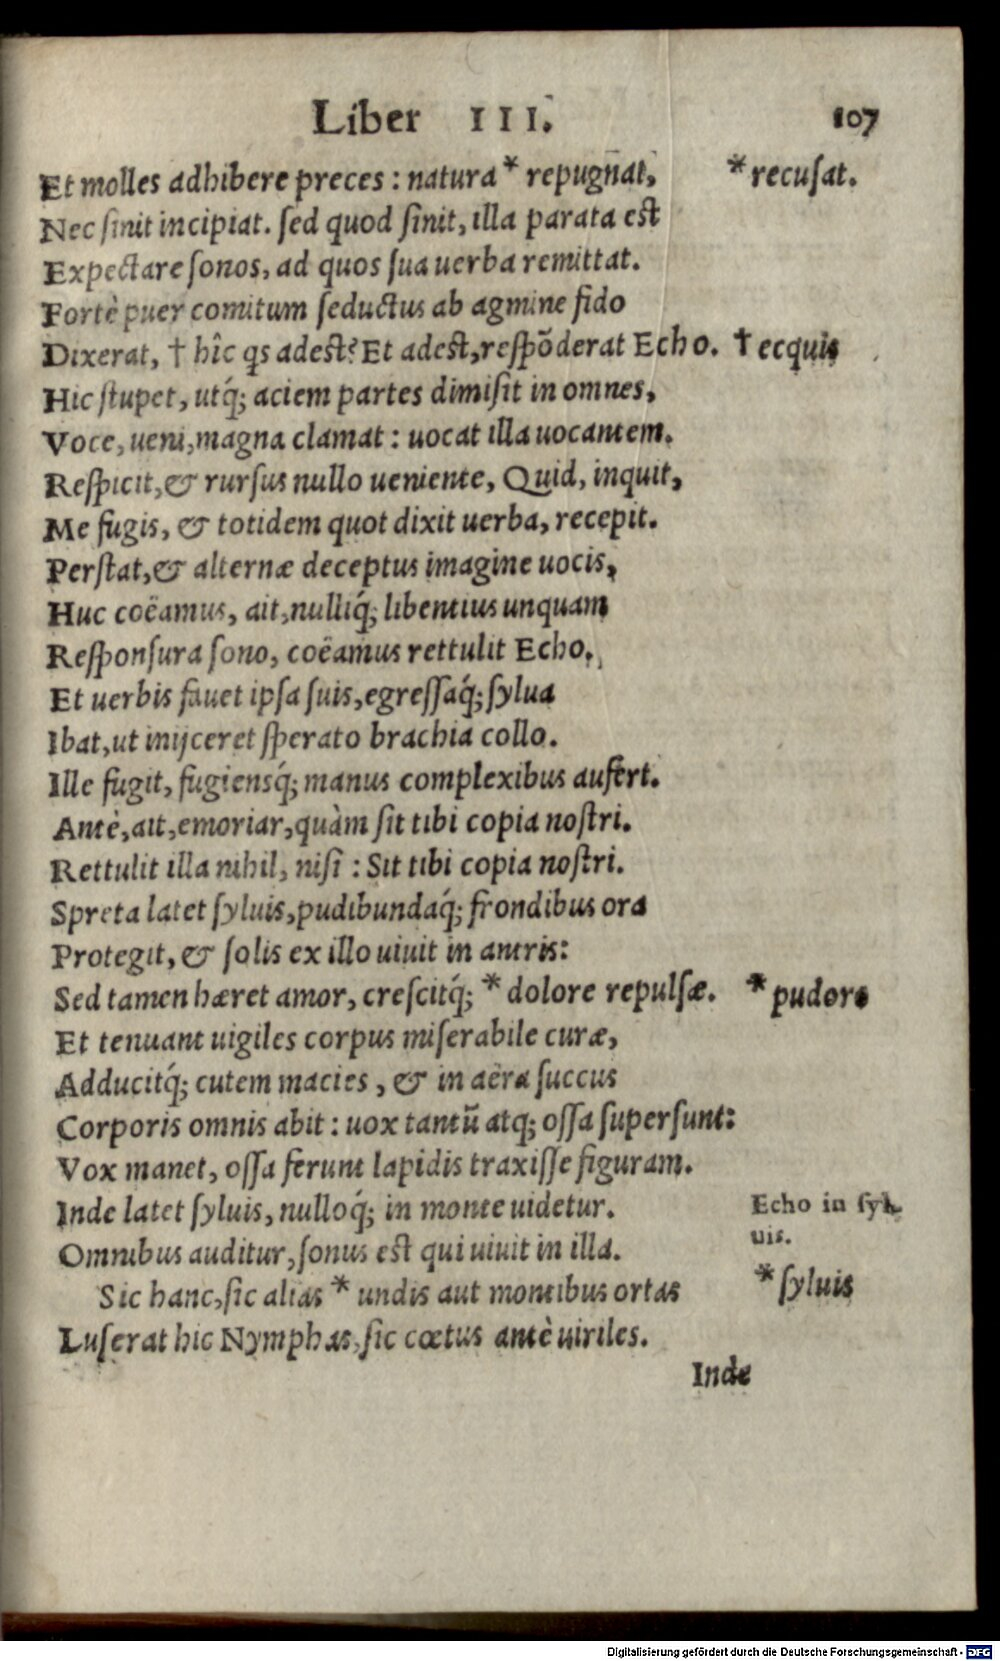 Liber III. 107
Et molles adhibere preces : natura * repugnat, * recusat.
Nec sinit incipiat. sed quod sinit, illa parata est
Expectare sonos, ad quos sua uerba remittat.
Fortè puer comitum seductus ab agmine fido
Dixerat, † hîc qs adest? Et adest, respōderat Echo. † ecquis
Hic stupet, utq́; aciem partes dimisit in omnes,
Voce, ueni, magna clamat : uocat illa uocantem.
Respicit, & rursus nullo ueniente, Quid, inquit,
Me fugis, & totidem quot dixit uerba, recepit.
Perstat, & alternæ deceptus imagine uocis,
Huc coëamus, ait, nulliq́; libentius unquam
Responsura sono, coëamus rettulit Echo.
Et uerbis fauet ipsa suis, egressaq́; sylua
Ibat, ut inijceret sperato brachia collo.
Ille fugit, fugiensq́; manus complexibus aufert.
Antè, ait, emoriar, quàm sit tibi copia nostri.
Rettulit illa nihil, nisi : Sit tibi copia nostri.
Spreta latet syluis, pudibundaq́; frondibus ora
Protegit, & solis ex illo uiuit in antris:
Sed tamen hæret amor, crescitq́; * dolore repulsæ. * pudore
Et tenuant uigiles corpus miserabile curæ,
Adducitq́; cutem macies, & in aëra succus
Corporis omnis abit : uox tantū atq; ossa supersunt:
Vox manet, ossa ferunt lapidis traxisse figuram.
Inde latet syluis, nulloq́; in monte uidetur. Echo in syl-
uis.
Omnibus auditur, sonus est qui uiuit in illa.
Sic hanc, sic alias * undis aut montibus ortas * syluis
Luserat hic Nymphas, sic cœtus antè uiriles.
Inde
Digitalisierung gefördert durch die Deutsche Forschungsgemeinschaft - DFG